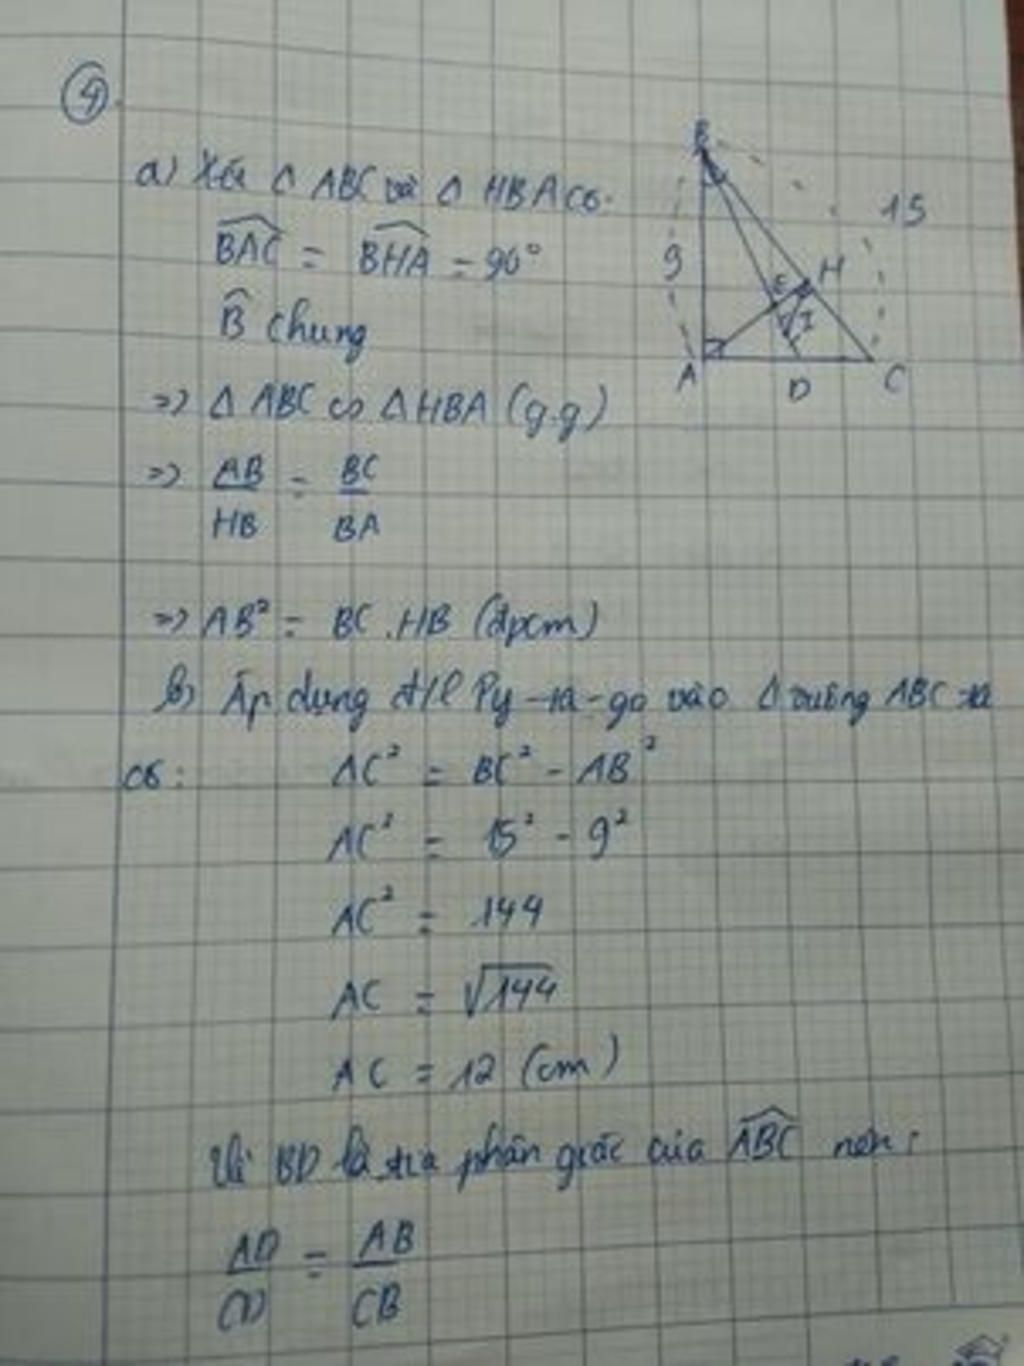 4
a) Xét Δ ABC và Δ HBA có:
BAC = BHA = 90°
B chung
=> Δ ABC ∽ Δ HBA (g.g)
=> AB/HB = BC/BA
=> AB² = BC . HB (đpcm)
b) Áp dụng đ/l Py-ta-go vào Δ vuông ABC ta
có: AC² = BC² - AB²
AC² = 15² - 9²
AC² = 144
AC = √144
AC = 12 (cm)
Vì BD là tia phân giác của ABC nên:
AD/CD = AB/CB
B
15
9
H
E
I
A
D
C